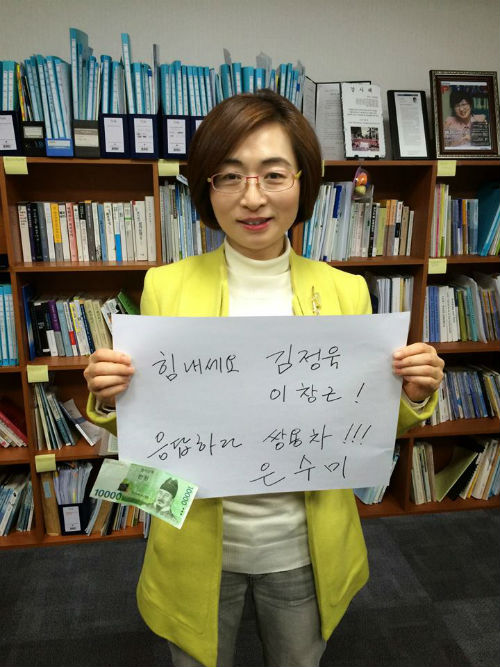 힘내세요 김정욱
이창근!
응답하라 쌍용차!!!
은수미
10000
10000